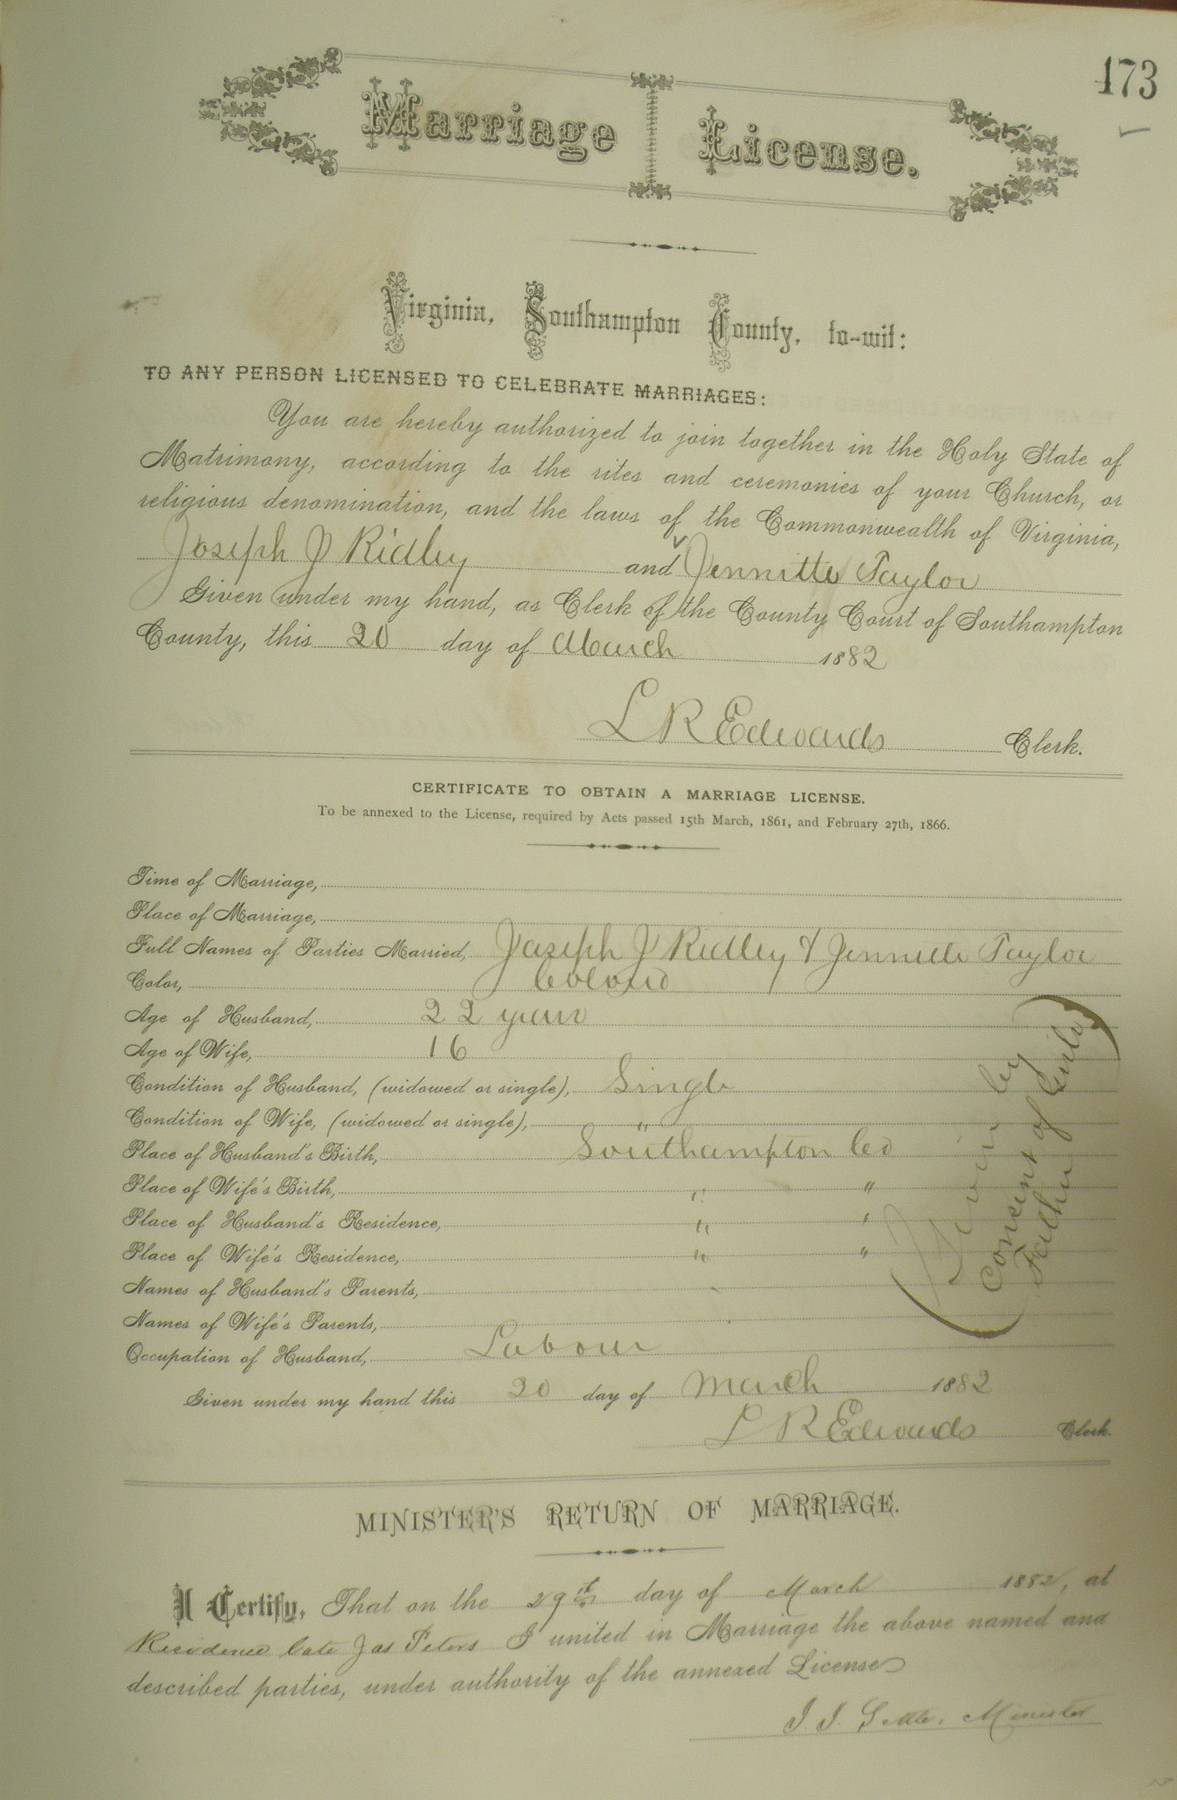 173
Marriage License.
Virginia, Southampton County, to-wit:
TO ANY PERSON LICENSED TO CELEBRATE MARRIAGES:
You are hereby authorized to join together in the Holy State of
Matrimony, according to the rites and ceremonies of your Church, or
religious denomination, and the laws of the Commonwealth of Virginia,
Joseph J Ridley and Jennitte Taylor
Given under my hand, as Clerk of the County Court of Southampton
County, this 20 day of March 1882
L R Edwards Clerk.
CERTIFICATE TO OBTAIN A MARRIAGE LICENSE.
To be annexed to the License, required by Acts passed 15th March, 1861, and February 27th, 1866.
Time of Marriage,
Place of Marriage,
Full Names of Parties Married, Joseph J Ridley & Jennitte Taylor
Color, Colored
Age of Husband, 22 years
Age of Wife, 16
Condition of Husband, (widowed or single), Single
Condition of Wife, (widowed or single), "
Place of Husband's Birth, Southampton Co
Place of Wife's Birth, " "
Place of Husband's Residence, " "
Place of Wife's Residence, " "
Names of Husband's Parents,
Names of Wife's Parents,
Occupation of Husband, Labour
(Given by
consent of Girls
Father)
Given under my hand this 20 day of March 1882
L R Edwards Clerk.
MINISTER'S RETURN OF MARRIAGE.
I Certify, That on the 29th day of March 1882, at
Residence late Jas Peters I united in Marriage the above named and
described parties, under authority of the annexed License
Minister